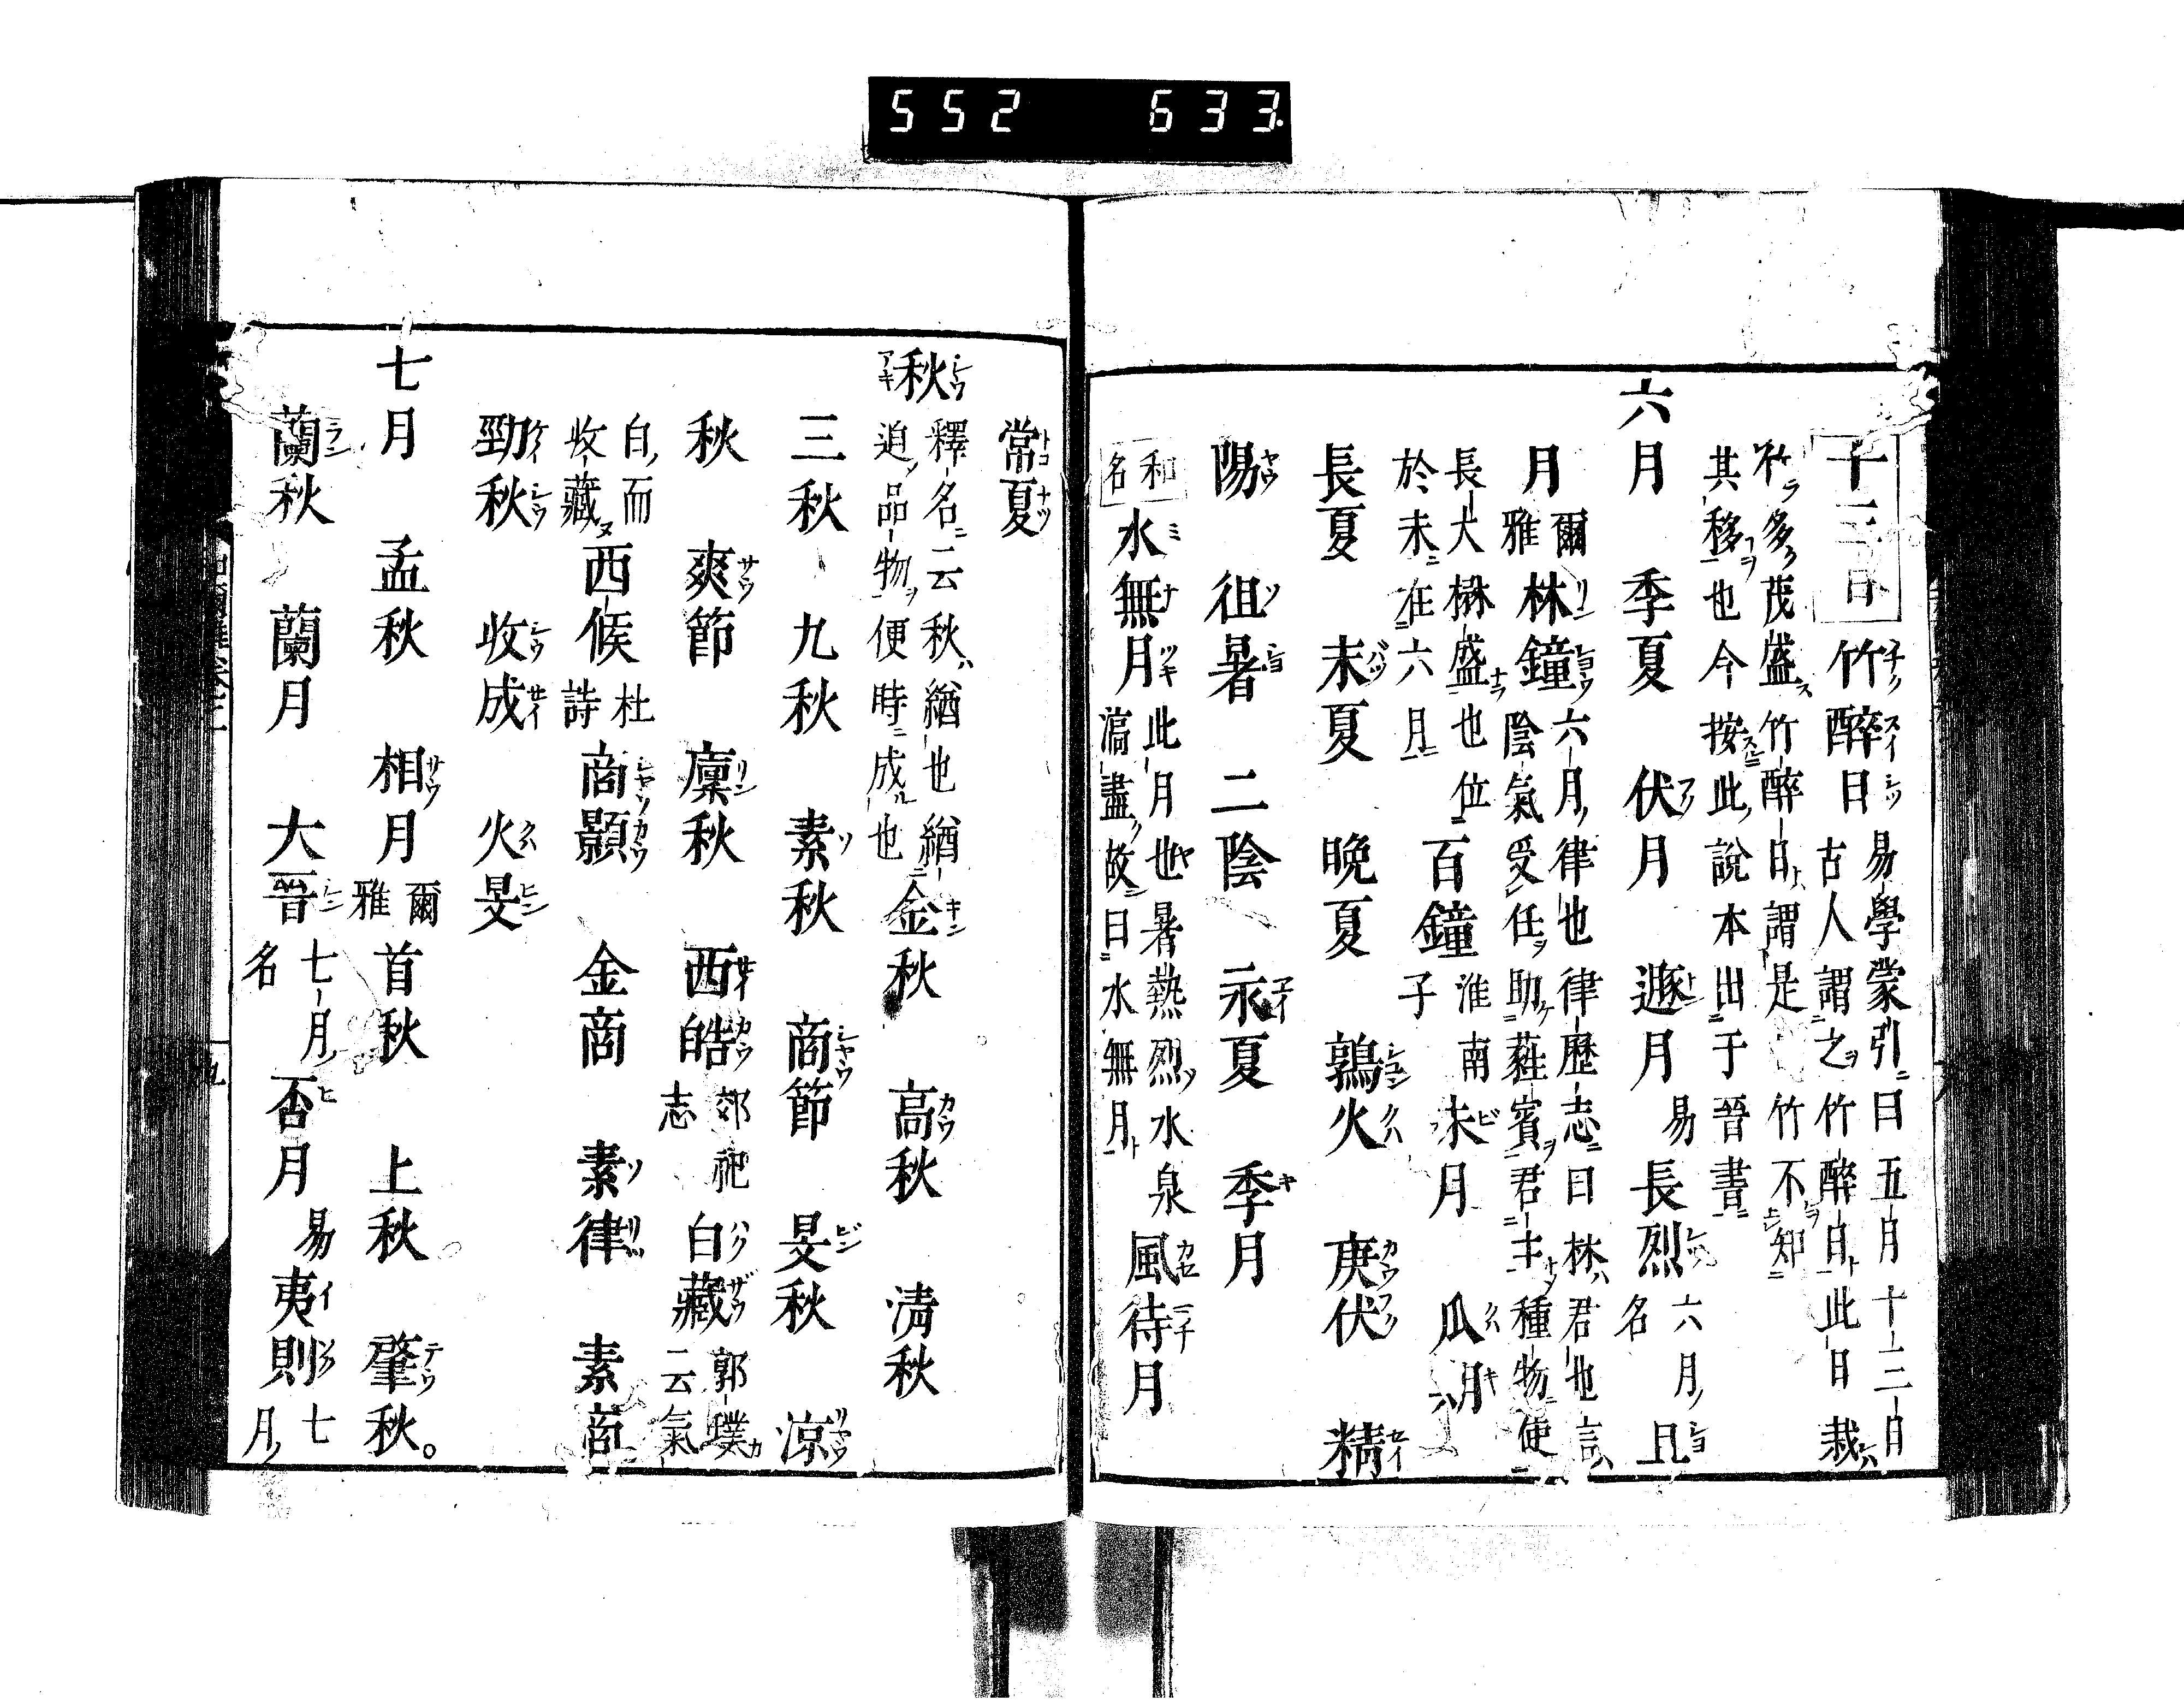 552 633
十三日 竹醉日 易學蒙引曰五月十三日
古人謂之竹醉日此日栽
竹多茂盛竹醉日謂是竹不知
其移也今按此說本出于晉書
六月 季夏 伏月 遯月 易 長烈 六月名 且
月 爾雅 林鐘 六月律也律歷志曰林君也言
陰氣受任助蕤賓君主種物使
長大楙盛也位
於未在六月 百鐘 淮南子 未月 瓜月
長夏 末夏 晩夏 鶉火 庚伏 精
陽 徂暑 二陰 永夏 季月
和名 水無月 此月也暑熱烈水泉
滈盡故曰水無月 風待月
常夏
秋 釋名云秋緧也緧
迫品物便時成也 金秋 高秋 清秋
三秋 九秋 素秋 商節 旻秋 凉
秋 爽節 凜秋 西皓 郊祀志 白藏 郭璞云氣
白而收藏 西候 杜詩 商顥 金商 素律 素商
勁秋 收成 火旻
七月 孟秋 相月 爾雅 首秋 上秋 肇秋
蘭秋 蘭月 大晉 七月名 否月 易 夷則 七月
九